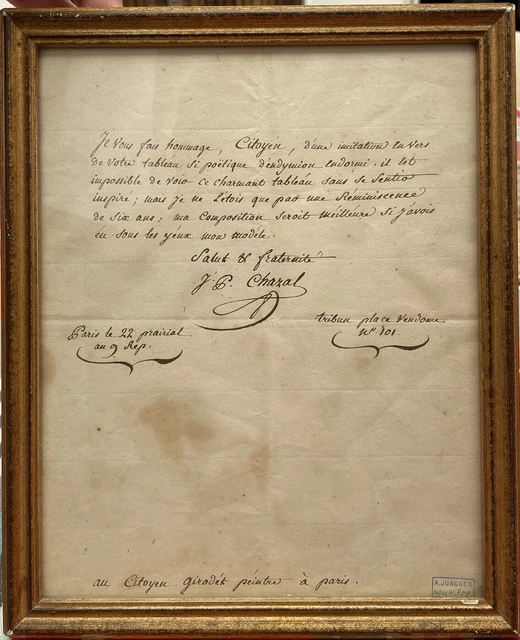 Je Vous fais hommage, Citoyen, d'une imitation en vers
de votre tableau si poëtique d'endymion endormi. il est
impossible de voir ce charmant tableau sans se sentir
inspiré; mais je ne l'étois que par une Réminiscence
de six ans; ma Composition seroit meilleure si j'avois
eu sous les yeux mon modele.
Salut & fraternité
J. P. Chazal
tribun place Vendome
n.º 101.
Paris le 22 prairial
an 9 Rep.
au Citoyen girodet peintre à paris.
A. JUNCHER